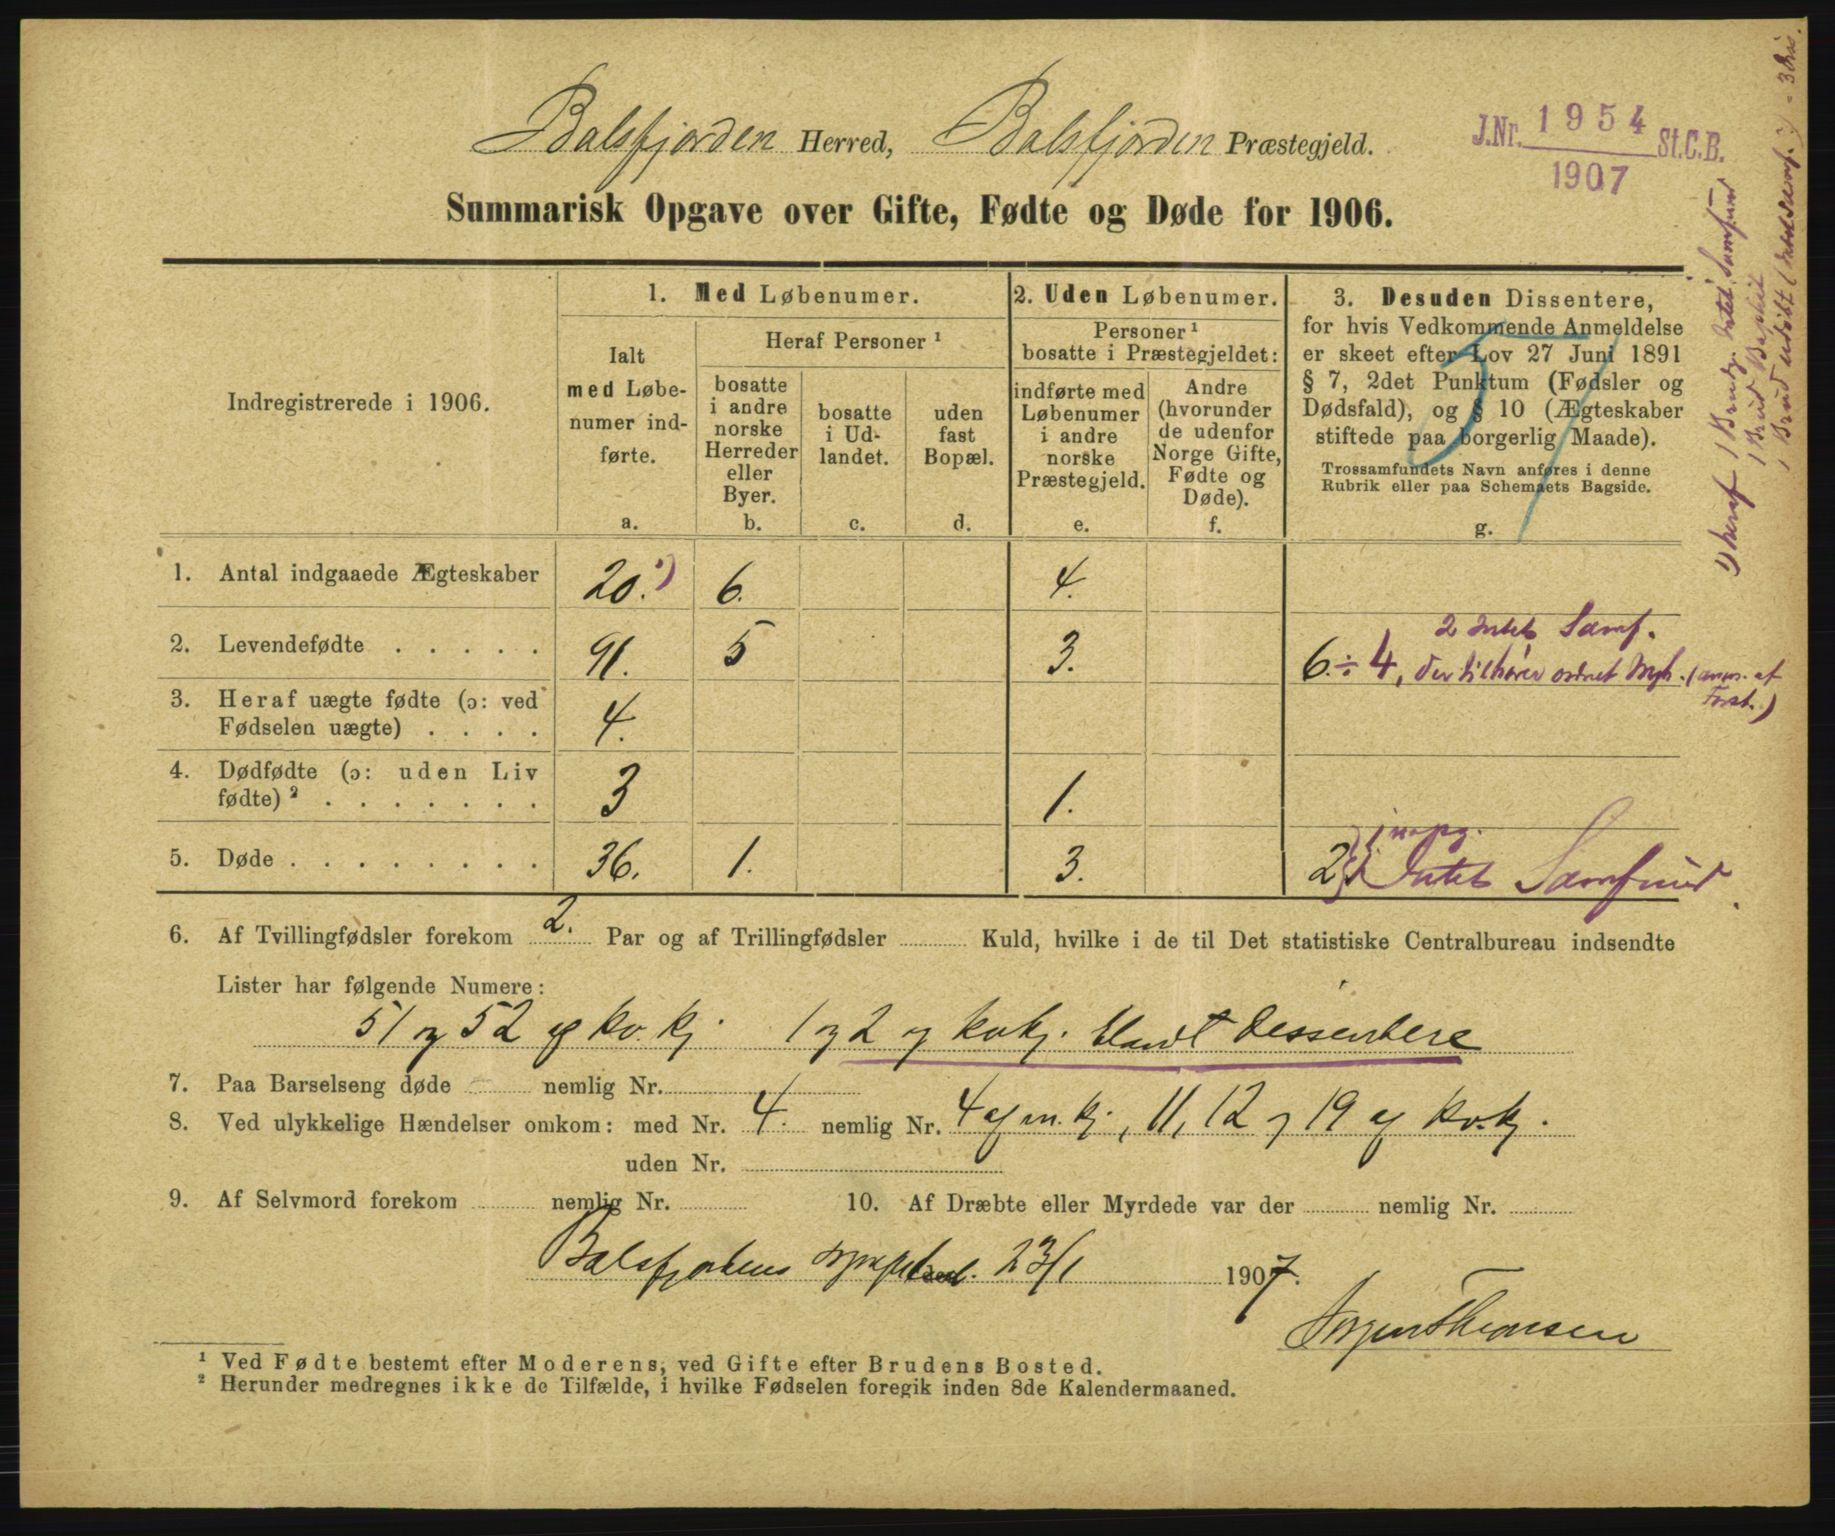 Balsfjorden Herred, Balsfjorden Præstegjeld.
J.Nr. 1954 St.C.B.
1907
Summarisk Opgave over Gifte, Fødte og Døde for 1906.
Indregistrerede i 1906.
1. Med Løbenumer.
Ialt
med Løbe-
numer ind-
førte.
a.
Heraf Personer ¹
bosatte
i andre
norske
Herreder
eller
Byer.
b.
bosatte
i Ud-
landet.
c.
uden
fast
Bopæl.
d.
2. Uden Løbenumer.
Personer ¹
bosatte i Præstegjeldet:
indførte med
Løbenumer
i andre
norske
Præstegjeld.
e.
Andre
(hvorunder
de udenfor
Norge Gifte,
Fødte og
Døde).
f.
3. Desuden Dissentere,
for hvis Vedkommende Anmeldelse
er skeet efter Lov 27 Juni 1891
§ 7, 2det Punktum (Fødsler og
Dødsfald), og § 10 (Ægteskaber
stiftede paa borgerlig Maade).
Trossamfundets Navn anføres i denne
Rubrik eller paa Schemaets Bagside.
g.
1. Antal indgaaede Ægteskaber 20. ¹) 6. 4.
2. Levendefødte . . . . . 91. 5 3. 6 ÷ 4, der tilhører ordnet Mgh. (anm. af
2 Intet Samf.
Forst.)
3. Heraf uægte fødte (ɔ: ved
Fødselen uægte) . . . . 4.
4. Dødfødte (ɔ: uden Liv
fødte) ² . . . . . . . 3 1.
5. Døde . . . . . . . . 36. 1. 3. 2 Intet Samfund
¹) heraf 1 Brudg. Intet Samfund
1 Brud Baptist
6. Af Tvillingfødsler forekom 2. Par og af Trillingfødsler Kuld, hvilke i de til Det statistiske Centralbureau indsendte
Lister har følgende Numere:
51 og 52 af kv. kj. 1 og 2 af kvkj. blandt Dissentere
7. Paa Barselseng døde nemlig Nr.
8. Ved ulykkelige Hændelser omkom: med Nr. 4. nemlig Nr. 4 af m. kj., 11, 12 og 19 af kv. kj.
uden Nr.
9. Af Selvmord forekom nemlig Nr. 10. Af Dræbte eller Myrdede var der nemlig Nr.
Balsfjordens 23/1 1907.
Jørgen Thomsen
¹ Ved Fødte bestemt efter Moderens, ved Gifte efter Brudens Bosted.
² Herunder medregnes ikke de Tilfælde, i hvilke Fødselen foregik inden 8de Kalendermaaned.